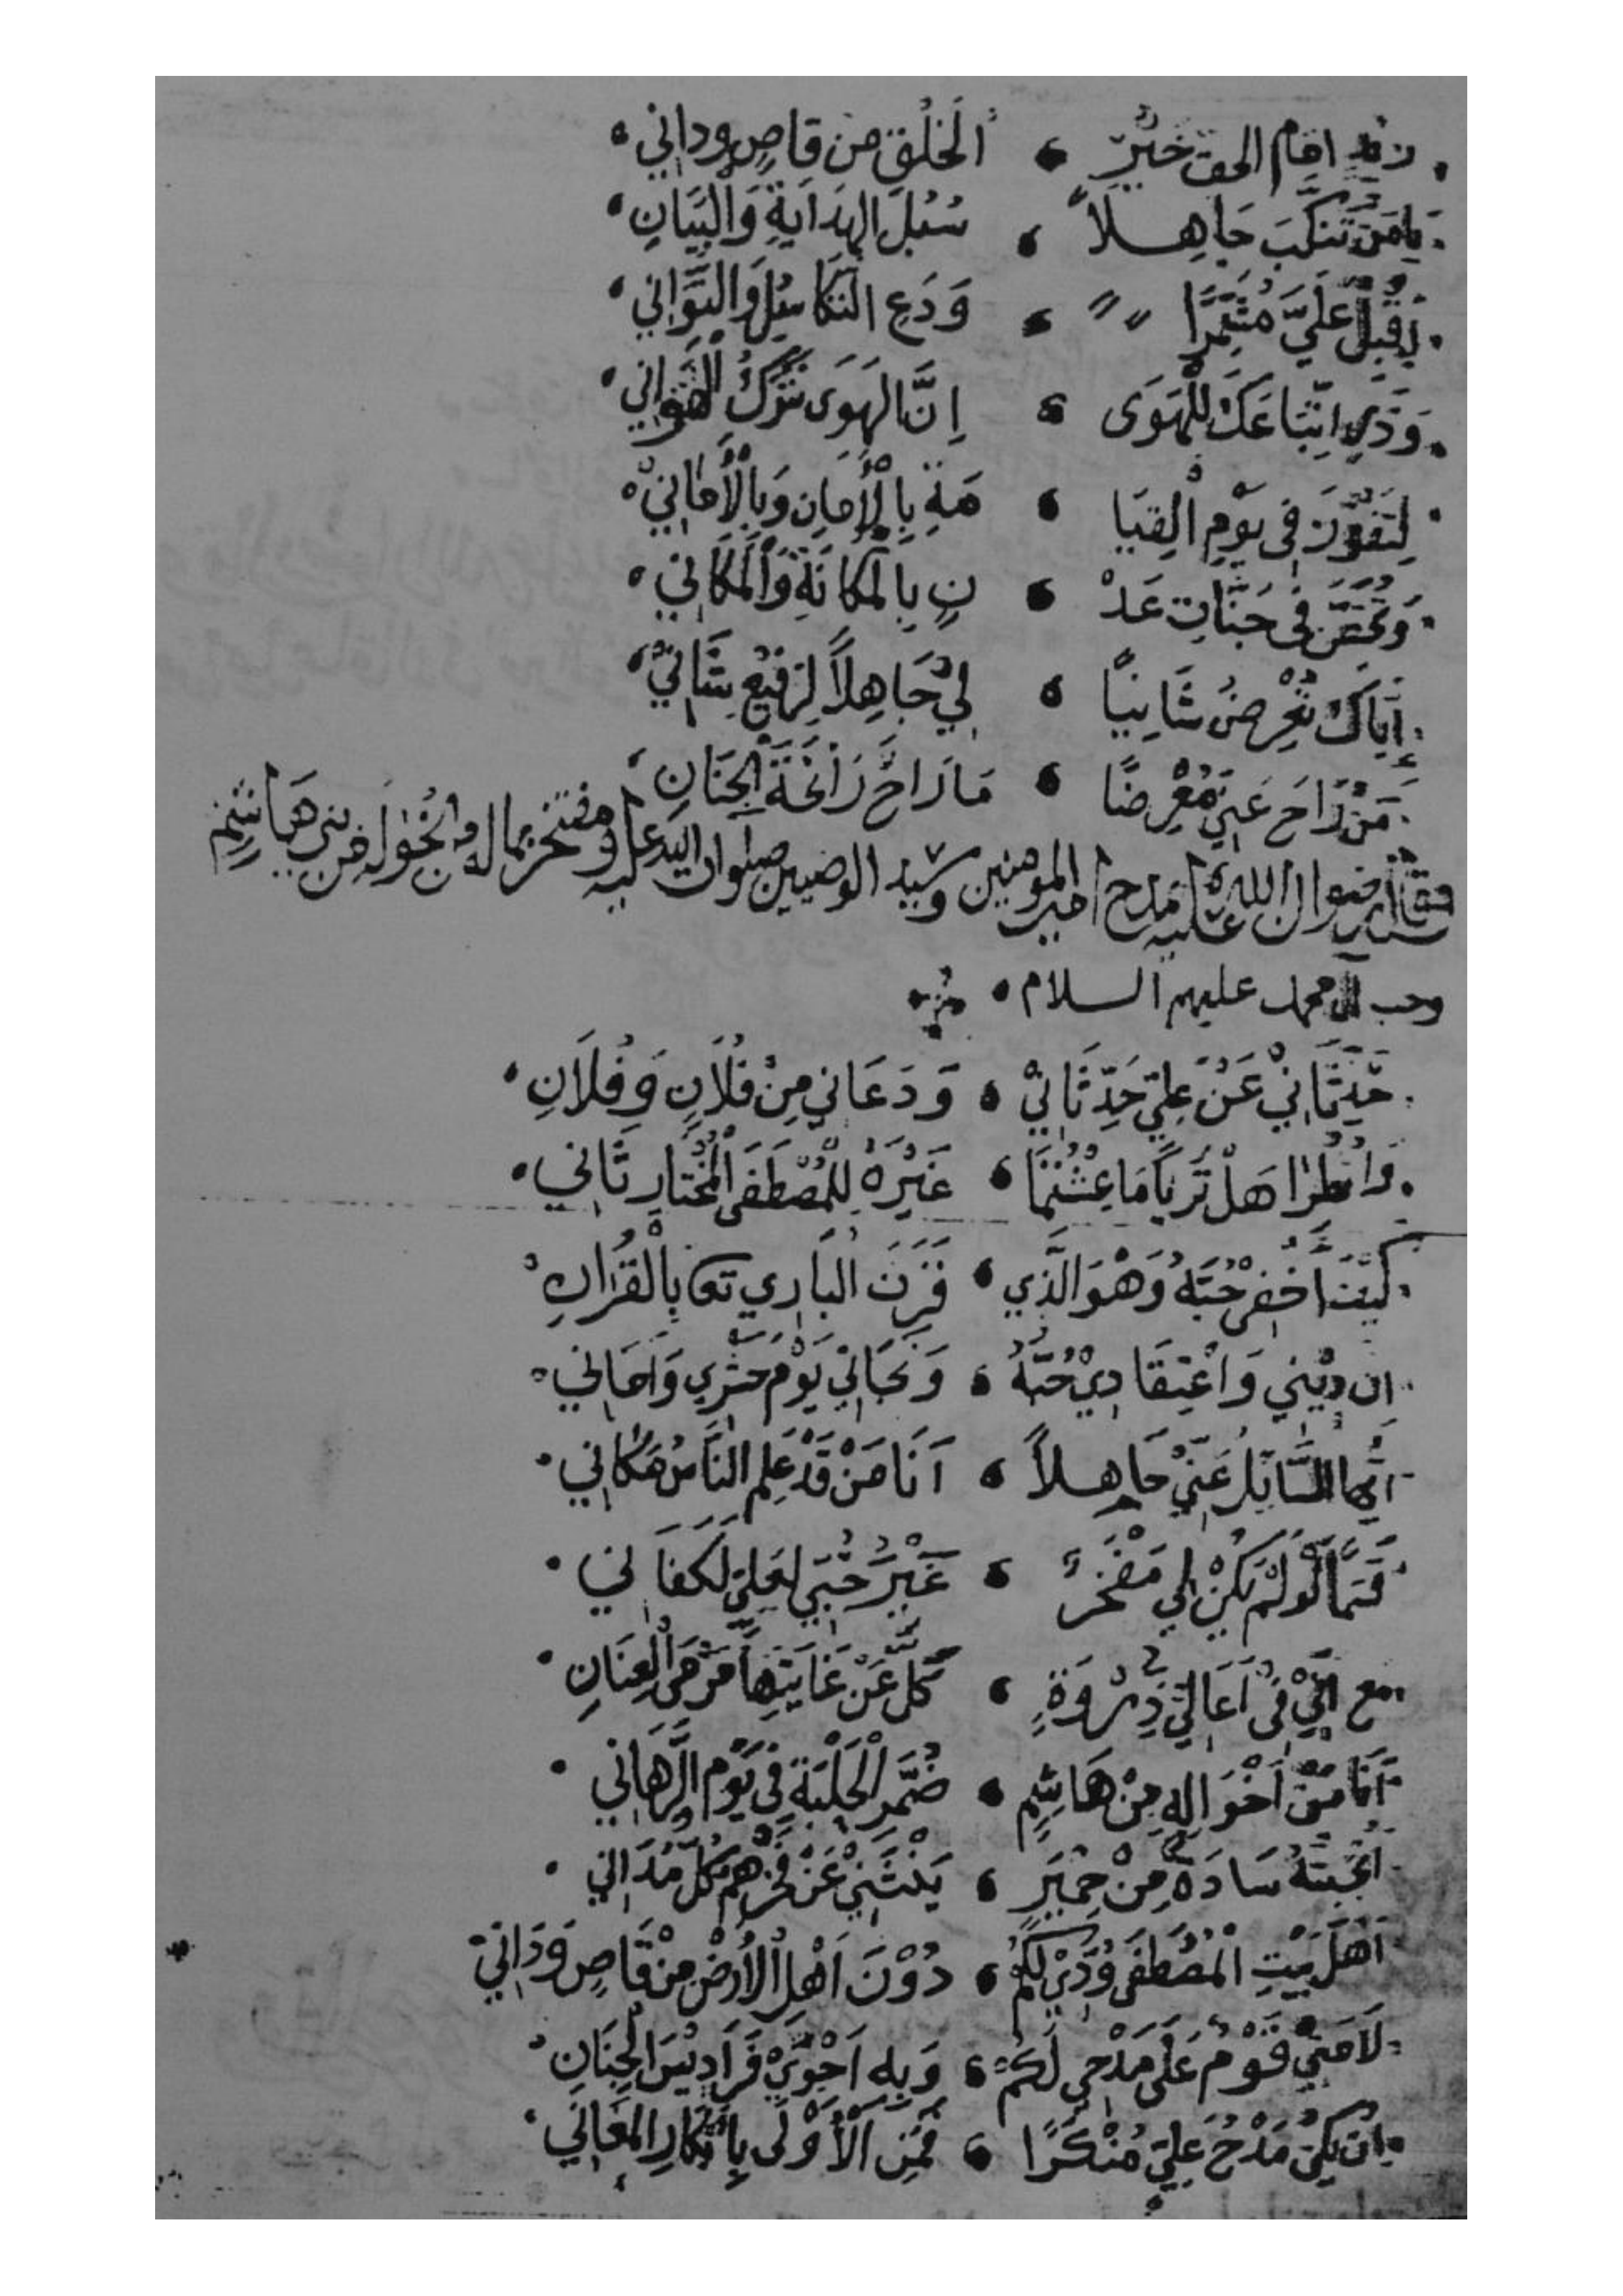 زيد امام الحق خير ، الخلق من قاصٍ وداني
يَا مَنْ تَنَكَّبَ جَاهِلاً ، سُبُلَ الهِدَايَةِ وَالْبَيَانِ
اِقْبَلْ عَلَيَّ مُشَمِّرًا ، وَدَعِ التَّكَاسُلَ وَالتَّوَانِي
وَذَرِ اتِّبَاعَكَ لِلْهَوَى ، اِنَّ الهَوَى شَرَكُ الْهَوَانِي
لِتَفُوْزَ فِي يَوْمِ الْقِيَا ، مَةِ بِالْأَمَانِ وَبِالْأَمَانِيْ
وَتَحُلَّ فِي جَنَّاتِ عَدْ ، نٍ بِالْمَكَانَةِ وَالْمَكَانِي
إِيَّاكَ تُعْرِضُ شَانِيًا ، لِيْ جَاهِلاً لِرَفِيْعِ شَانِيْ
مَنْ رَاحَ عَنِّي مُعْرِضًا ، مَا رَاحَ رَائِحَةَ الْجَنَانِ
فقال رضوان الله عليه مدح امير المومنين وسيد الوصيين صلوات الله عليه ومفتخر بماله من الخؤوله من بني هَاشِمٍ
وحب آل محمد عليهم السلام
حَدِّثَانِيْ عَنْ عَلِيٍّ حَدِّثَانِيْ ، وَدَعَانِي مِنْ فُلَانٍ وَفُلَانِ
وَانْظُرَا هَلْ تَرَيَا مَا عِشْتُمَا ، غَيْرَهُ لِلْمُصْطَفَى الْمُخْتَارِ ثَانِي
كَيْفَ أَخْفِي حُبَّهُ وَهْوَ الَّذِي ، قَرَنَ الْبَارِي تع بِالْقُرَانِ
ان دِيْنِي وَاعْتِقَادِيْ حُبُّهُ ، وَنَجَاتِيْ يَوْمَ حَشْرِي وَاَمَانِي
اَيُّهَا السَّائِلُ عَنِّيْ جَاهِلاً ، اَنَا مَنْ قَدْ عَلِمَ النَّاسُ مَكَانِي
قَسَمًا لَوْ لَمْ يَكُنْ لِي مَفْخَرٌ ، غَيْرَ حُبِّي لِعَلِيٍّ لَكَفَانِي
مع اَنِّيْ فِيْ اَعَالِيْ ذِرْوَةٍ ، كَلَّ عَنْ غَايَتِهَا مَرْمَى الْعِنَانِ
اَنَا مَنْ اَخْوَالُهِ مِنْ هَاشِمٍ ، ضُمَّرِ الْحَلْبَةِ فِي يَوْمِ الرِّهَانِي
اَنْجَبَتْهُ سَادَةٌ مِنْ حِمْيَرٍ ، يَنْثَنِيْ عَنْ فَخْرِهِمْ كُلُّ مُدَانِي
اَهْلَ بَيْتِ الْمُصْطَفَى وُدِّيْ لَكُمْ ، دُوْنَ اَهْلِ الْأَرْضِ مِنْ قَاصٍ وَدَانِيْ
لَامَنِيْ قَوْمٌ عَلَى مَدْحِي لَكُمْ ، وَبِهِ اَحْوِيْ فَرَادِيْسَ الْجِنَانِ
اِنْ يَكُنْ مَدْحُ عَلِيٍّ مُنْكَرًا ، فَمَنِ الْأَوْلَى بِاَبْكَارِ الْمَعَانِي